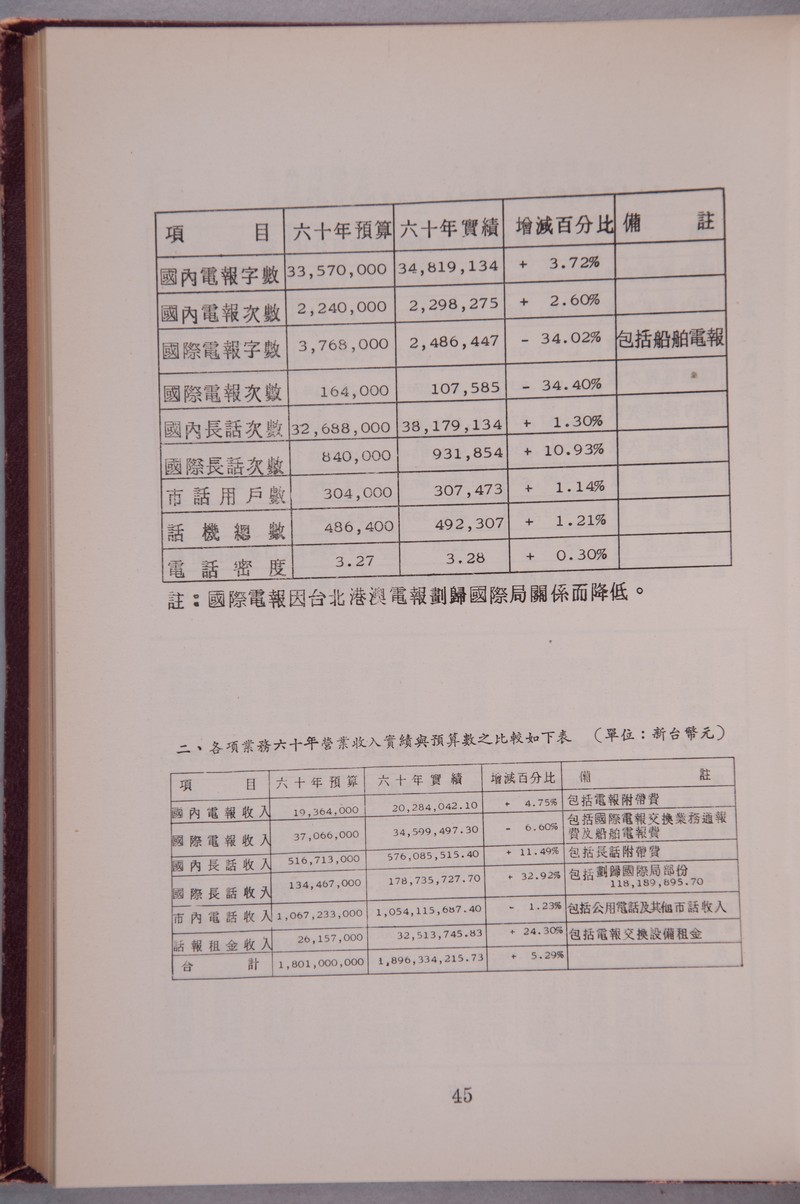 項 目 六十年預算 六十年實績 增減百分比 備 註
國內電報字數 33,570,000 34,819,134 + 3.72%
國內電報次數 2,240,000 2,298,275 + 2.60%
國際電報字數 3,768,000 2,486,447 - 34.02% 包括船舶電報
國際電報次數 164,000 107,585 - 34.40%
國內長話次數 32,688,000 38,179,134 + 1.30%
國際長話次數 840,000 931,854 + 10.93%
市話用戶數 304,000 307,473 + 1.14%
話機總數 486,400 492,307 + 1.21%
電話密度 3.27 3.28 + 0.30%
註：國際電報因台北港澳電報劃歸國際局關係而降低。
二、各項業務六十年營業收入實績與預算數之比較如下表 （單位：新台幣元）
項 目 六十年預算 六十年實績 增減百分比 備 註
國內電報收入 19,364,000 20,284,042.10 + 4.75% 包括電報附帶費
國際電報收入 37,066,000 34,599,497.30 - 6.60% 包括國際電報交換業務通報
費及船舶電報費
國內長話收入 516,713,000 576,085,515.40 + 11.49% 包括長話附帶費
國際長話收入 134,467,000 178,735,727.70 + 32.92% 包括劃歸國際局部份
118,189,895.70
市內電話收入 1,067,233,000 1,054,115,687.40 - 1.23% 包括公用電話及其他市話收入
話報租金收入 26,157,000 32,513,745.83 + 24.30% 包括電報交換設備租金
合 計 1,801,000,000 1,896,334,215.73 + 5.29%
45